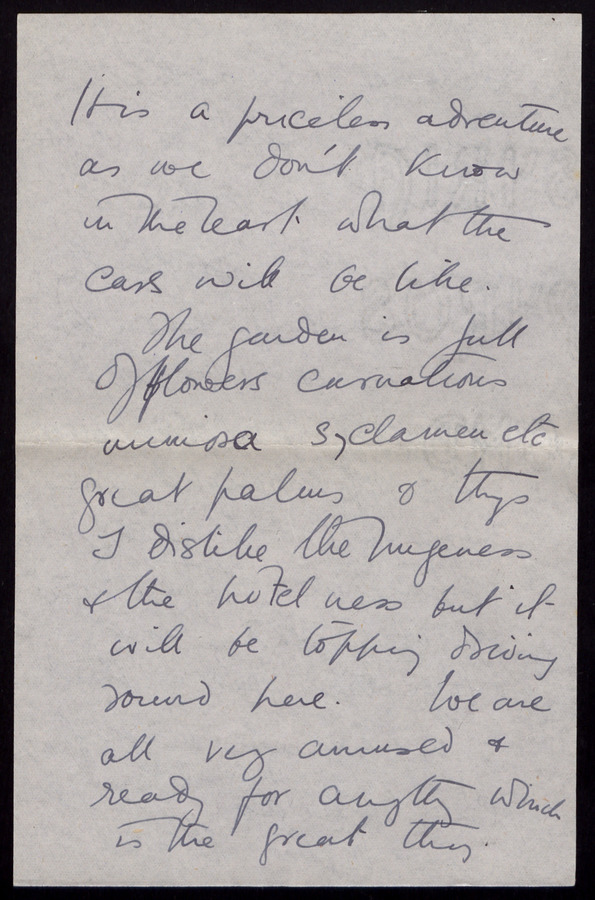 It is a priceless adventure
as we don't know
in the least what the
cars will be like.
The garden is full
of flowers carnations
mimosa syclamen etc
great palms & thgs
I dislike the hugeness
& the hotel ness but it
will be topping driving
round here. We are
all very amused &
ready for anythg which
is the great thg.